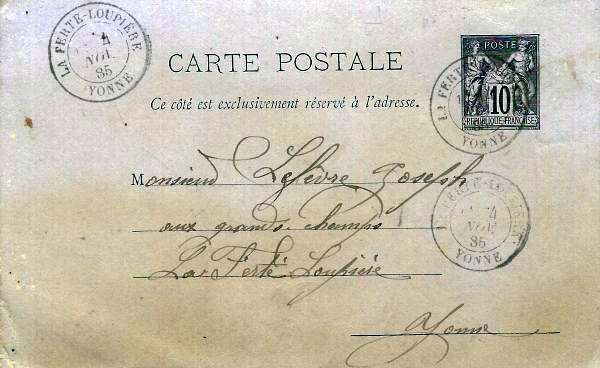 LA FERTÉ-LOUPIÈRE
4
NOV.
85
YONNE
CARTE POSTALE
Ce côté est exclusivement réservé à l'adresse.
POSTE
10
RÉPUBLIQUE FRANÇAISE
LA FERTÉ
YONNE
Monsieur Lefèvre Joseph
aux grands-champs
La Ferté Loupière
Yonne
LA FERTÉ-LOUPIÈRE
4
NOV.
85
YONNE